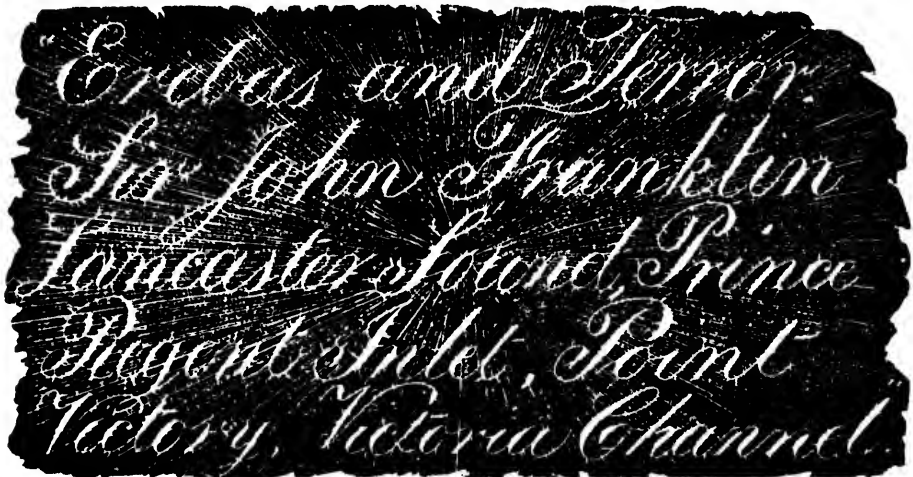 Erebus and Terror.
Sir John Franklin
Lancaster Sound, Prince
Regent Inlet, Point
Victory, Victoria Channel.